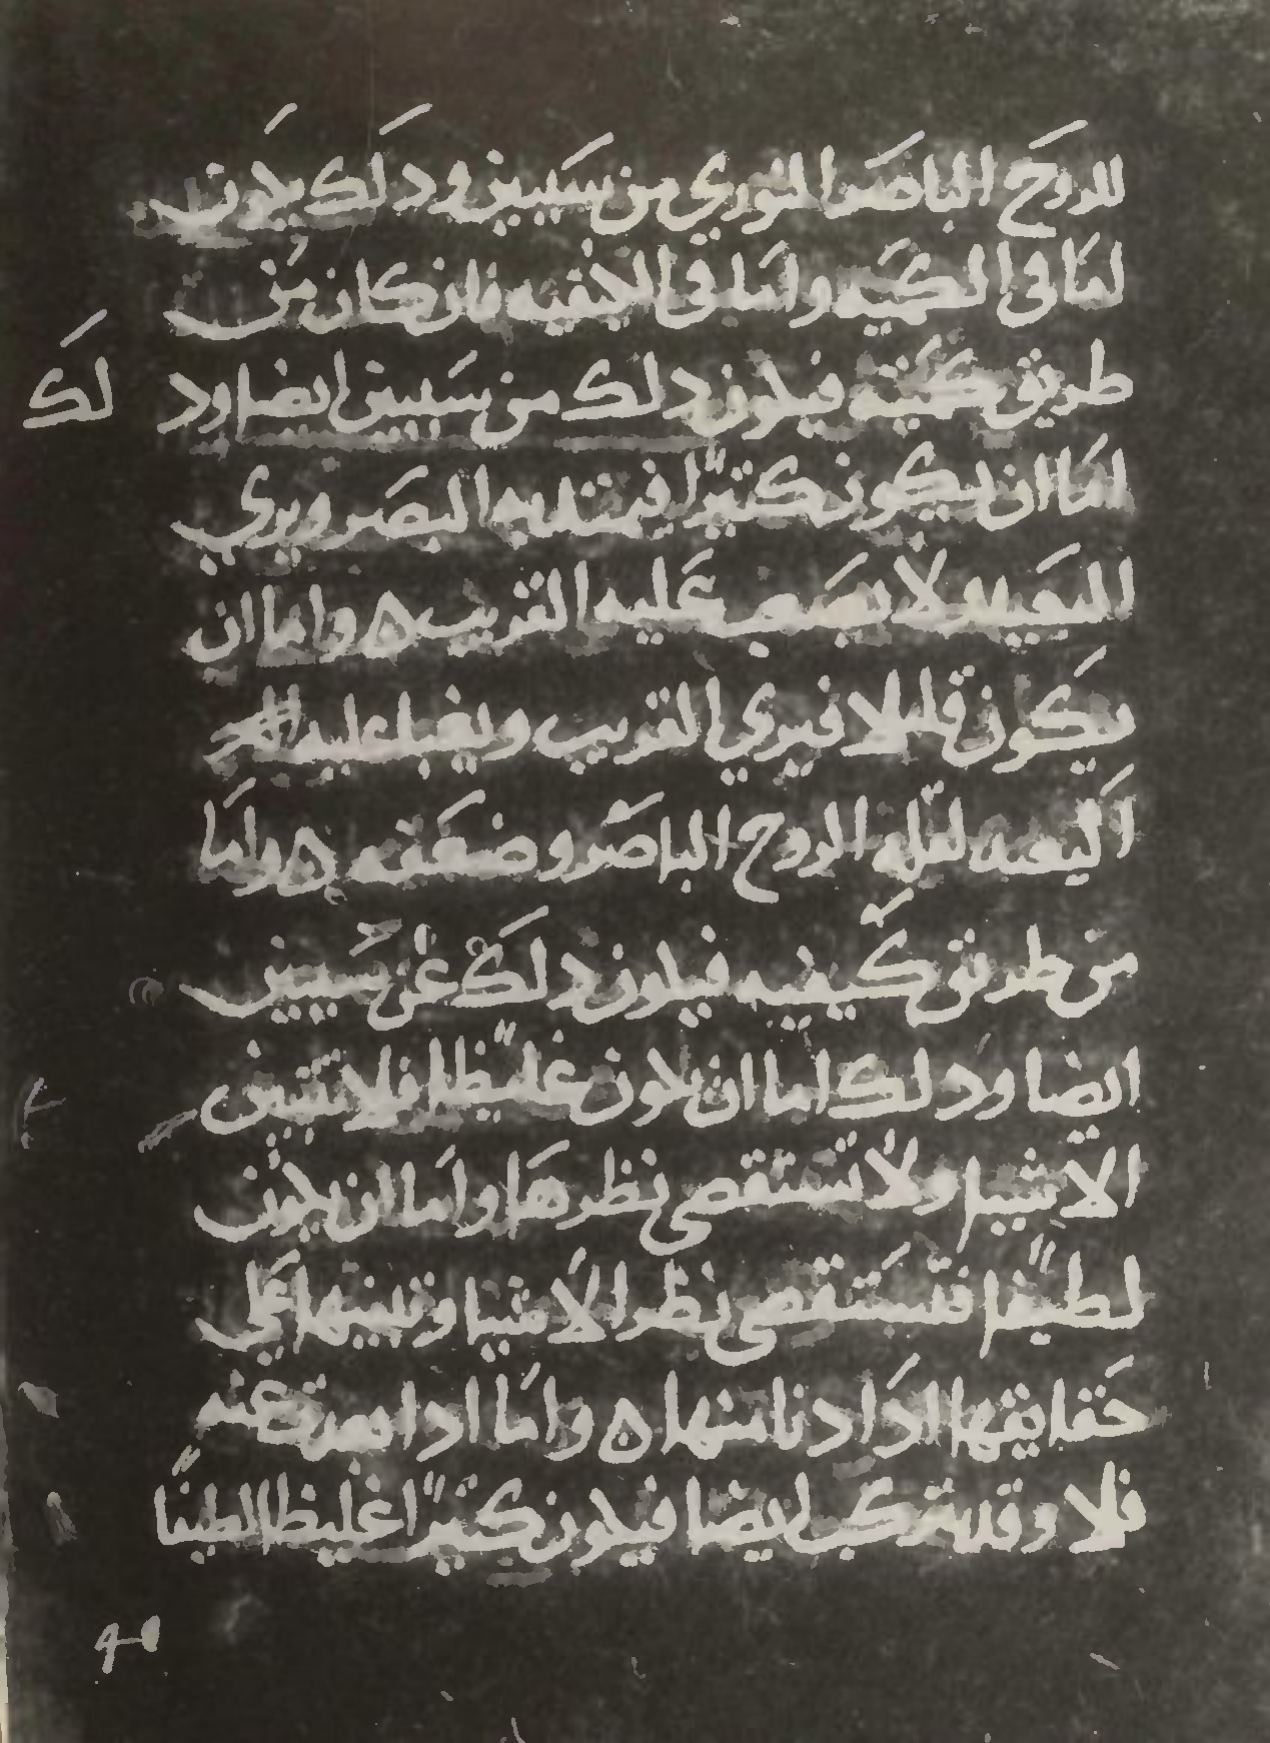 للروح الباصر النوري من سببين ودلك يكون
اما في الكميه واما في الكيفيه فان كان من
طريق كميته فيكون دلك من سببين ايضا ود لك
اما ان يكون كتيرا فيمتد به البصر ويري
البعيد ولا يصعب عليه القريب ه واما ان
يكون قليلا فيري القريب ويغبا عليه
البعيد لقله الروح الباصر وضعفه ه واما
من طريق كيفيه فيكون دلك عن سببين
ايضا ودلك اما ان يكون غليظا فلا يتبين
الاشيا ولا تستقصي نظرها واما ان يكون
لطيفا فتستقصي نظر الاشيا وتبينها علي
حقايقها ادا دنا منها ه واما ادا بعدت عنه
فلا وقد يتركب ايضا فيكون كتيرا غليظا لطيفا